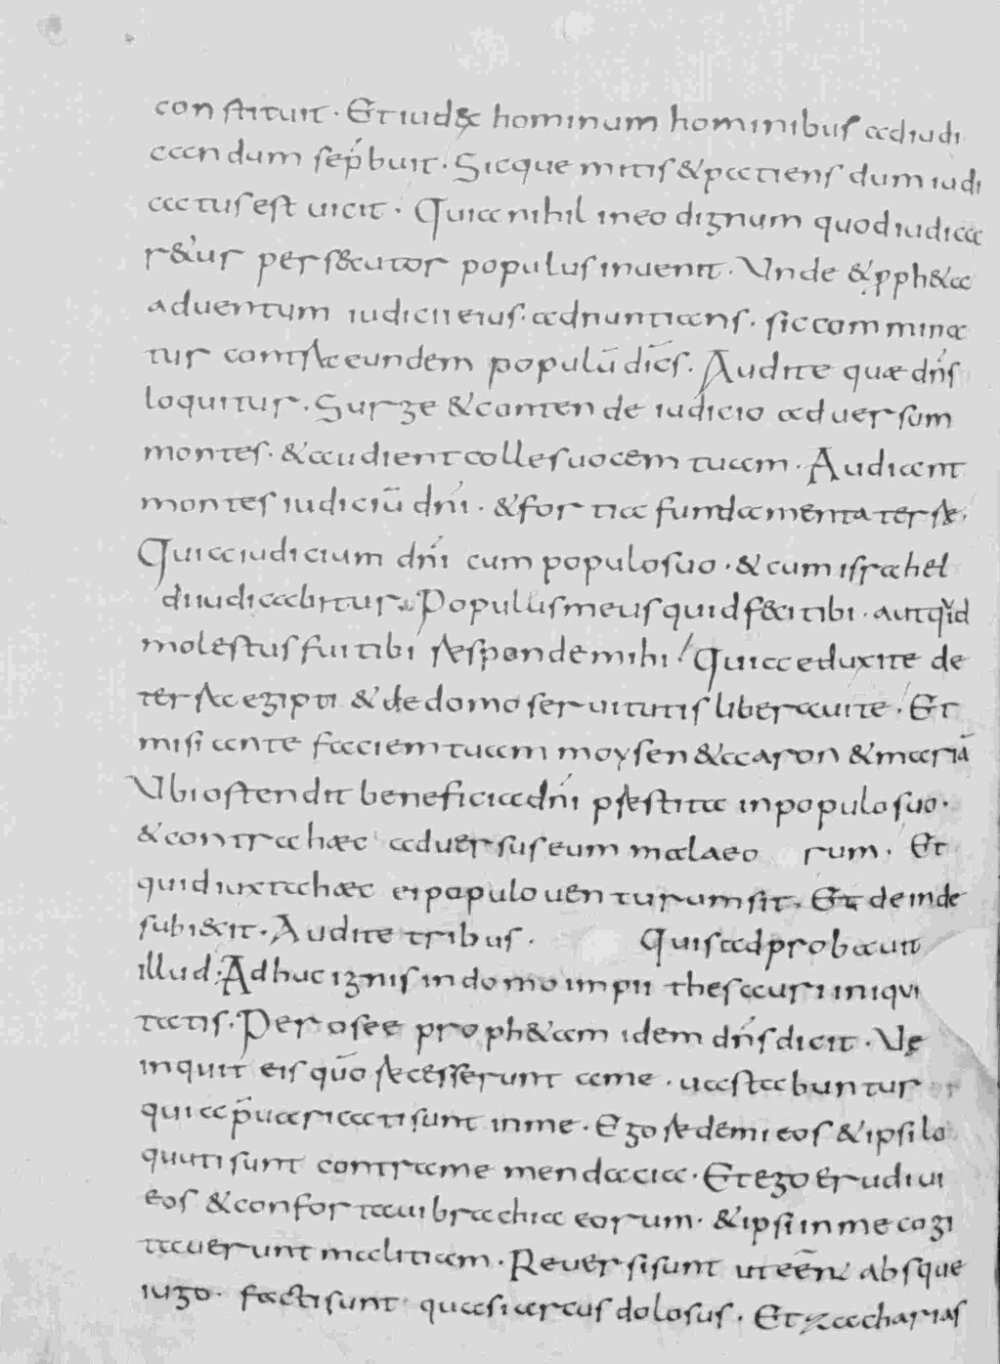 constituit · Et iudex hominum hominibus ad iudi
candum sep̄buit · Sicque mitis & patiens dum iudi
catus est uicit · Quia nihil in eo dignum quod iudica
r&ur persecutor populus inuenit · Unde & pph&a
aduentum iudicii eius · adnuntians · sic commina
tur contra eundem populū dic̄s · Audite quæ dn̄s
loquitur · Surge & contende iudicio aduersum
montes · & audient colles uocem tuam · Audiant
montes iudiciū dn̄i · & fortia fundamenta terræ ·
Quia iudicium dn̄i cum populo suo · & cum israhel
diiudicabitur · Popullus meus quid feci tibi · aut qd
molestus fui tibi responde mihi ! Quia eduxi te de
terra egipti & de domo seruitutis liberaui te · Et
misi ante faciem tuam moysen & aaron & mariā
Ubi ostendit beneficia dn̄i præstita in populo suo ·
& contra hæc aduersus eum mala eo rum · Et
quid iuxta hæc ei populo uenturum sit · Et deinde
subiecit · Audite tribus · Quis adprobauit
illud · Adhuc ignis in domo impii thesauri iniqui
tatis · Per osee proph&am idem dn̄s dicit · Uę
inquit eis qūo recesserunt a me · uastabuntur
quia p̄uaricati sunt in me · Ego redemi eos & ipsi lo
quuti sunt contra me mendacia · Et ego erudiui
eos & confortaui brachia eorum · & ipsi in me cogi
tauerunt malitiam · Reuersi sunt ut eēn̄t absque
iugo · facti sunt quasi arcus dolosus · Et zacharias